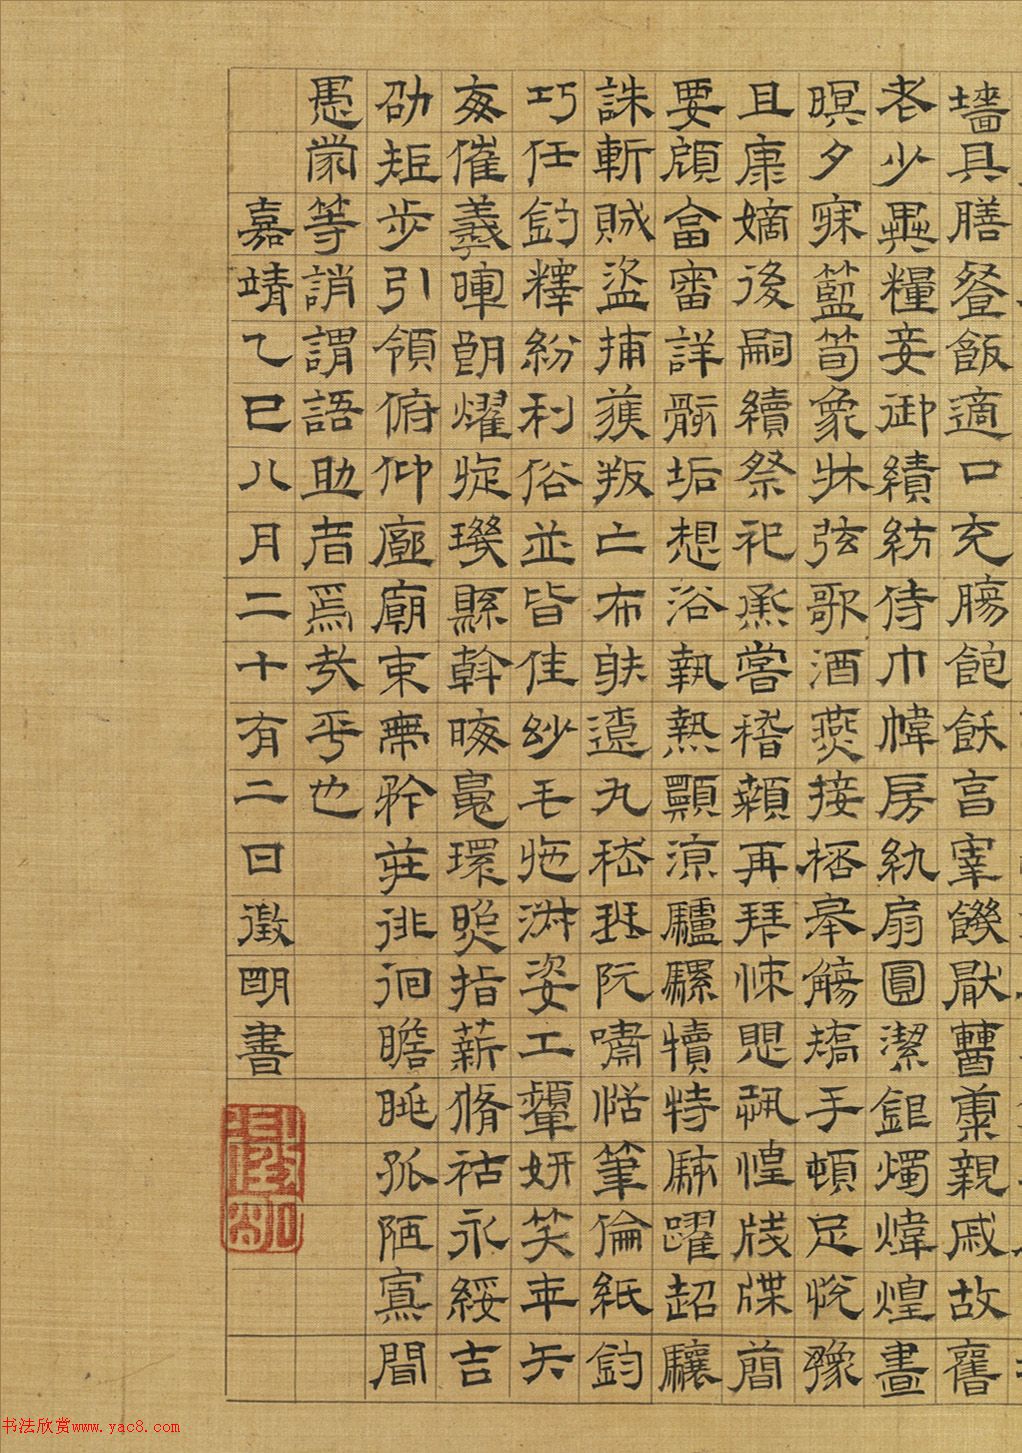 墻具膳飡飯適口充腸飽飫享宰饑厭糟糠親戚故舊
老少異糧妾御績紡侍巾帷房紈扇圓潔銀燭煒煌晝
暝夕寐籃筍象牀弦歌酒讌接杯舉觴矯手頓足悅豫
且康嫡後嗣續祭祀烝嘗稽顙再拜悚懼恐惶牋牒簡
要顧答審詳骸垢想浴執熱願涼驢騾犢特駭躍超驤
誅斬賊盜捕獲叛亡布射遼丸嵇琴阮嘯恬筆倫紙鈞
巧任釣釋紛利俗並皆佳妙毛施淑姿工顰妍笑年矢
每催羲暉朗耀旋璣懸斡晦魄環照指薪脩祜永綏吉
劭矩步引領俯仰廊廟束帶矜莊徘徊瞻眺孤陋寡聞
愚蒙等誚謂語助者焉哉乎也
嘉靖乙巳八月二十有二日徵明書
书法欣赏www.yac8.com